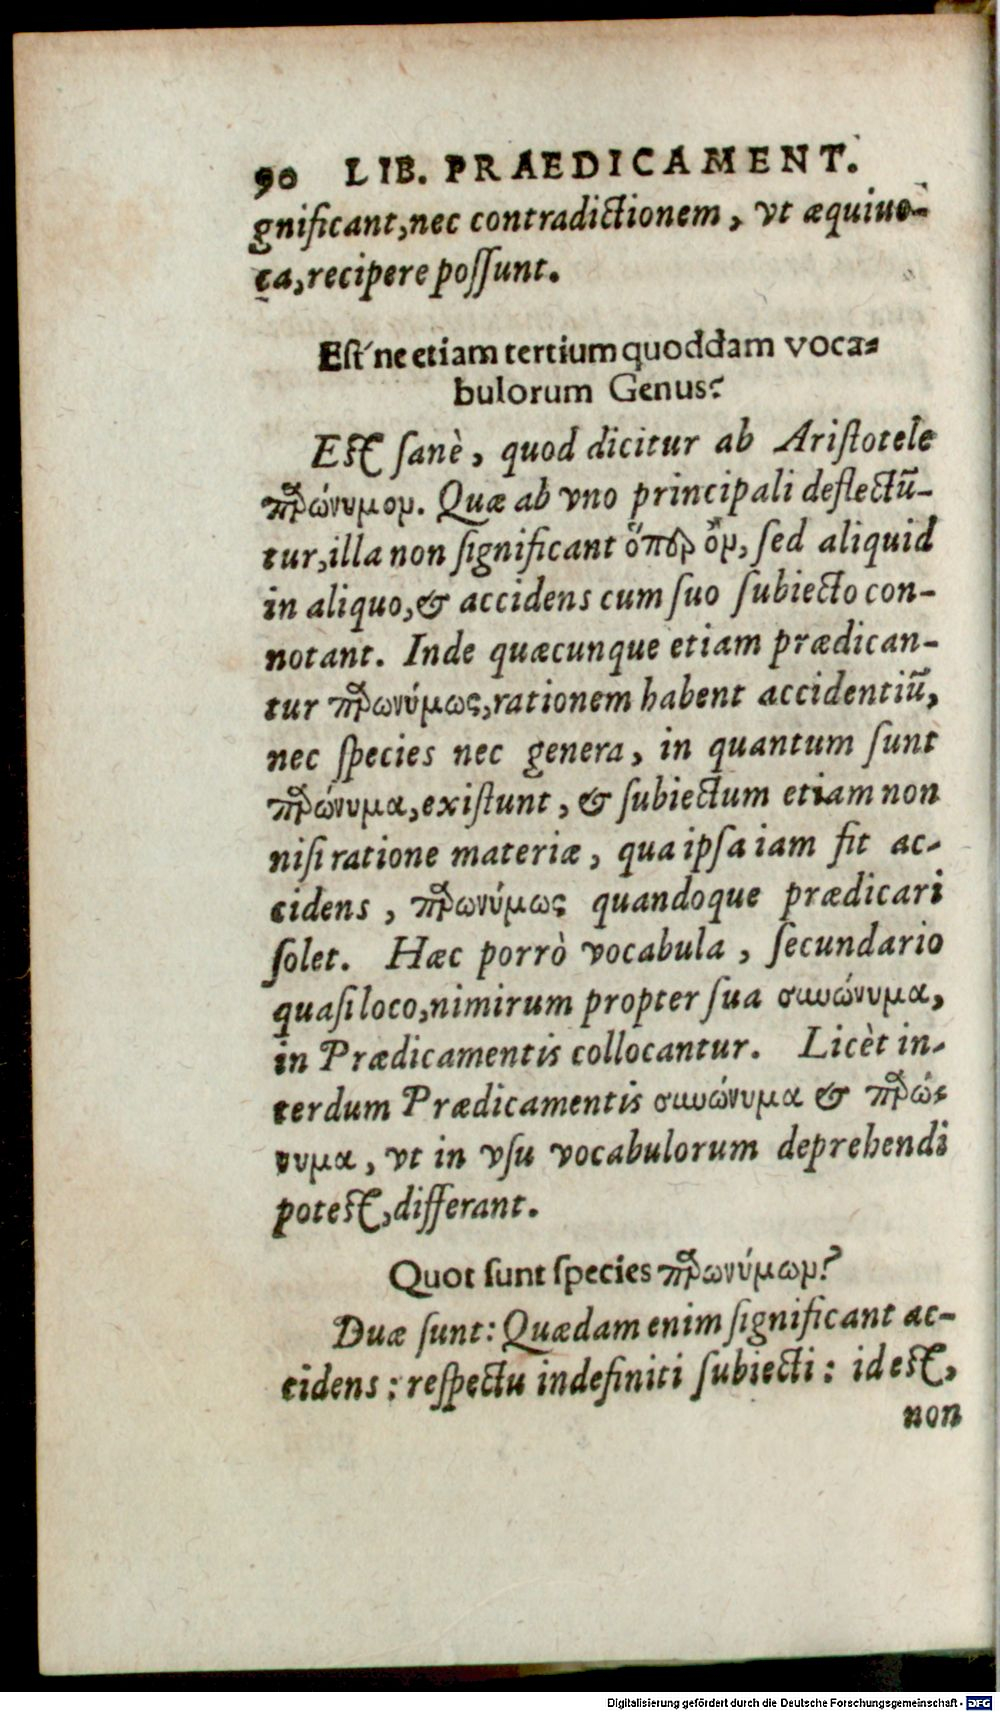 90 LIB. PRAEDICAMENT.
gnificant, nec contradictionem, vt æquiuo-
ca, recipere possunt.
Est'ne etiam tertium quoddam voca-
bulorum Genus?
Est sanè, quod dicitur ab Aristotele
παρώνυμον. Quæ ab vno principali deflectũ-
tur, illa non significant ὅπερ ὄν, sed aliquid
in aliquo, & accidens cum suo subiecto con-
notant. Inde quæcunque etiam prædican-
tur παρωνύμως, rationem habent accidentiũ,
nec species nec genera, in quantum sunt
παρώνυμα, existunt, & subiectum etiam non
nisi ratione materiæ, qua ipsa iam fit ac-
cidens, παρωνύμως quandoque prædicari
solet. Hæc porrò vocabula, secundario
quasi loco, nimirum propter sua συνώνυμα,
in Prædicamentis collocantur. Licèt in-
terdum Prædicamentis συνώνυμα & παρώ-
νυμα, vt in vsu vocabulorum deprehendi
potest, differant.
Quot sunt species παρωνύμων?
Duæ sunt: Quædam enim significant ac-
cidens: respectu indefiniti subiecti: id est,
non
Digitalisierung gefördert durch die Deutsche Forschungsgemeinschaft - DFG